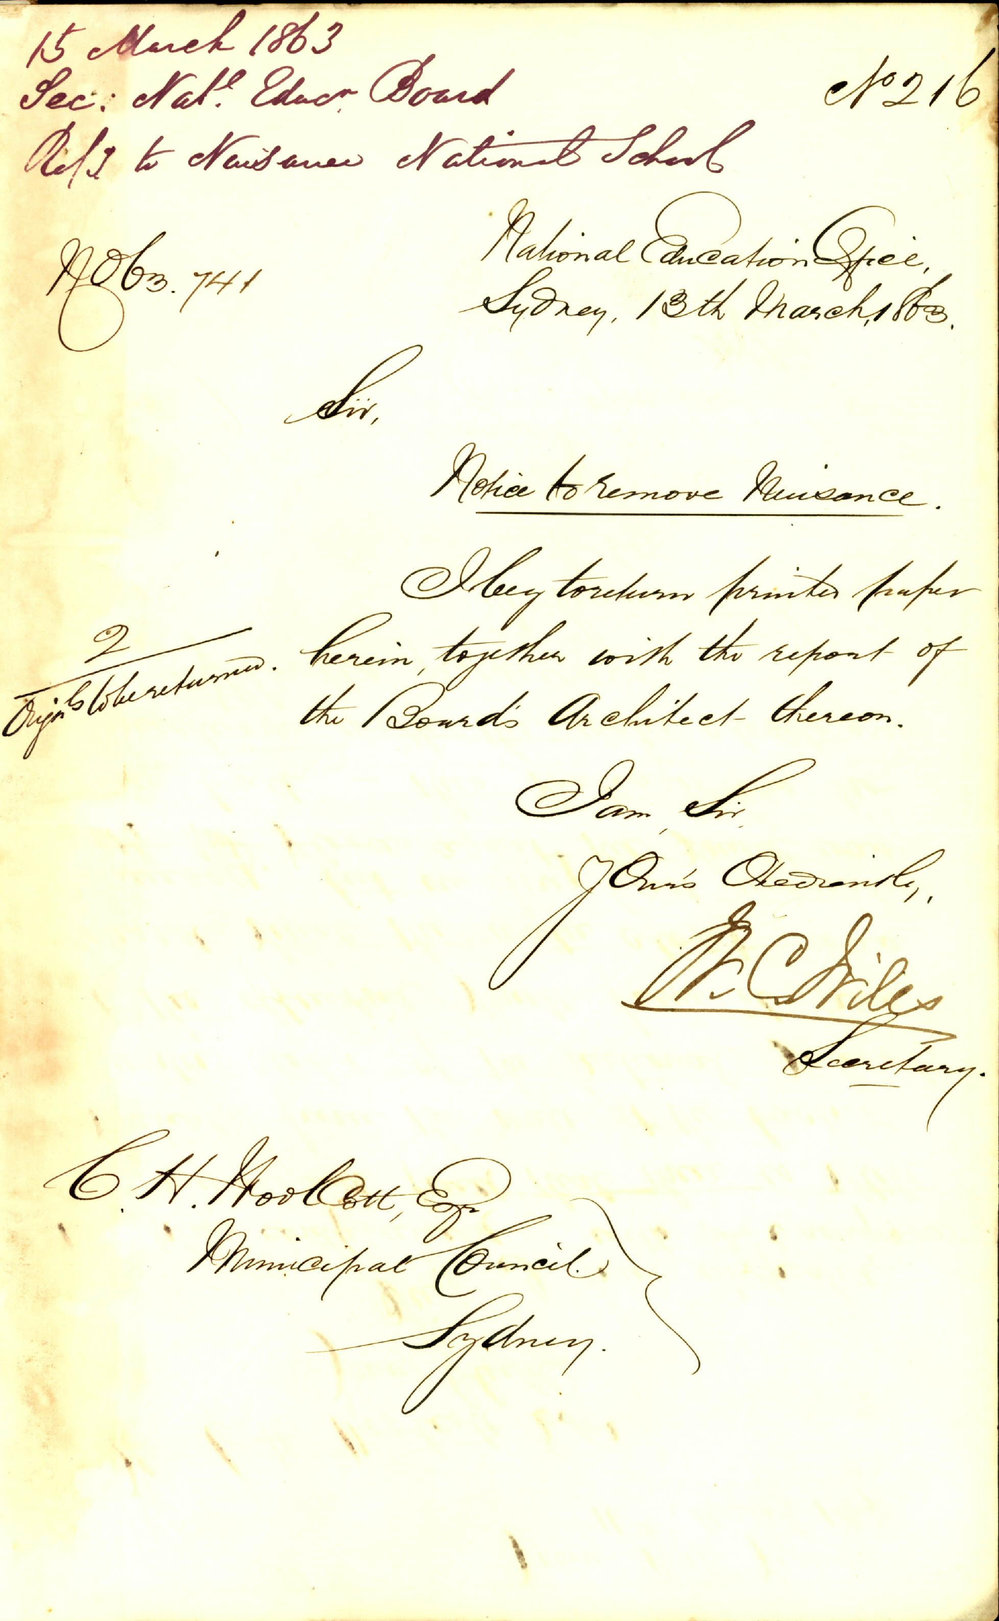 15 March 1863
Sec: Natl. Educn. Board
No 216
to Nuisance National School
National Education Office,
No 63.741
Sydney, 13th March, 1863.
Sir,
Notice to remove Nuisance.
I beg to return printed paper
2
herein, together with the report of
Orignls to be returned.
the Board's Architect thereon.
I am, Sir,
Yours Obediently,
W. C. Wills
Secretary.
C. H. Woolcott, Esqr
Municipal Council.
Sydney.